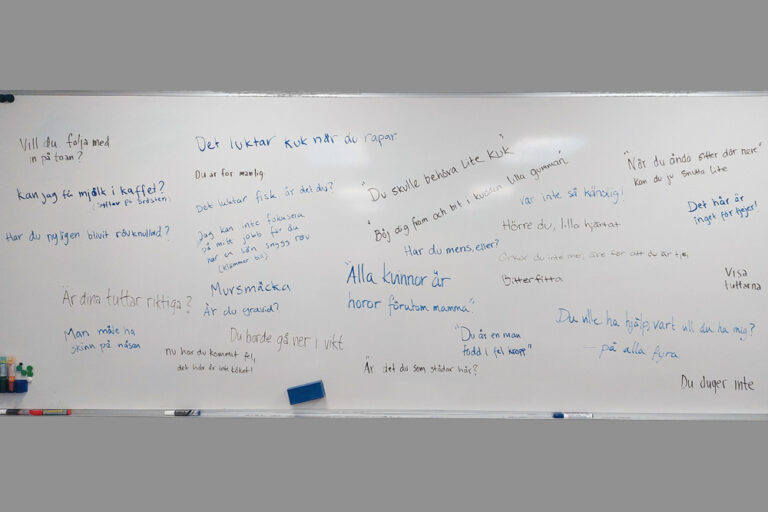 Vill du följa med
in på toan?
Kan jag få mjölk i kaffet?
(syftar på brösten)
Har du nyligen blivit rövknullad?
Är dina tuttar riktiga?
Man måste ha
skinn på näsan
Det luktar kuk när du rapar
Du är för manlig
Det luktar fisk, är det du?
Jag kan inte fokusera
på mitt jobb för du
har en sån snygg röv
(klämmer till)
Mursmäcka
Är du gravid?
Du borde gå ner i vikt
nu har du kommit fel,
det här är inte köket!
"Du skulle behöva lite kuk"
"Böj dig fram och bit i kudden lilla gumman"
Har du mens, eller?
"Alla kvinnor är
horor förutom mamma"
Är det du som städar här?
var inte så känslig!
Hörre du, lilla hjärtat
Orkar du inte mer, är det för att du är tjej
Bitterfitta
"Du är en man
född i fel kropp"
"När du ändå sitter där nere"
kan du ju smutta lite
Det här är
inget för tjejer!
Visa
tuttarna
Du ville ha hjälp, vart vill du ha mig?
— på alla fyra
Du duger inte